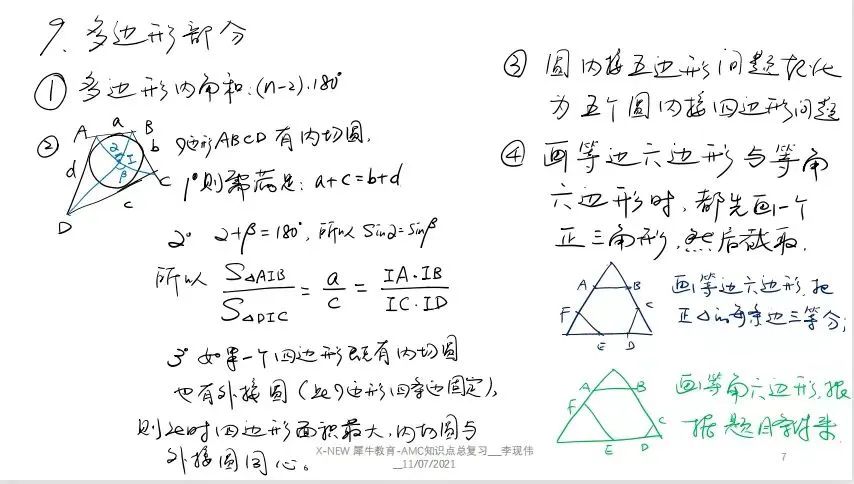 9. 多边形部分
① 多边形内角和:(n-2)·180°
② 四边形ABCD有内切圆,
A a B
b
d
I
α
β
C
c
D
1° 则需满足: a+c=b+d
2° α+β=180°, 所以 sinα=sinβ
所以 S△AIB / S△DIC = a / c = IA·IB / IC·ID
3° 如果一个四边形既有内切圆
也有外接圆(此四边形四条边固定),
则此时四边形面积最大,内切圆与
外接圆同心。
③ 圆内接五边形问题转化
为五个圆内接四边形问题
④ 画等边六边形与等角
六边形时,都先画一个
正三角形,然后截取.
A B
F C
E D
画等边六边形,把
正△的每条边三等分;
A B
F C
E D
画等角六边形,根
据题目条件来
X-NEW 犀牛教育-AMC知识点总复习__李现伟
__11/07/2021
7